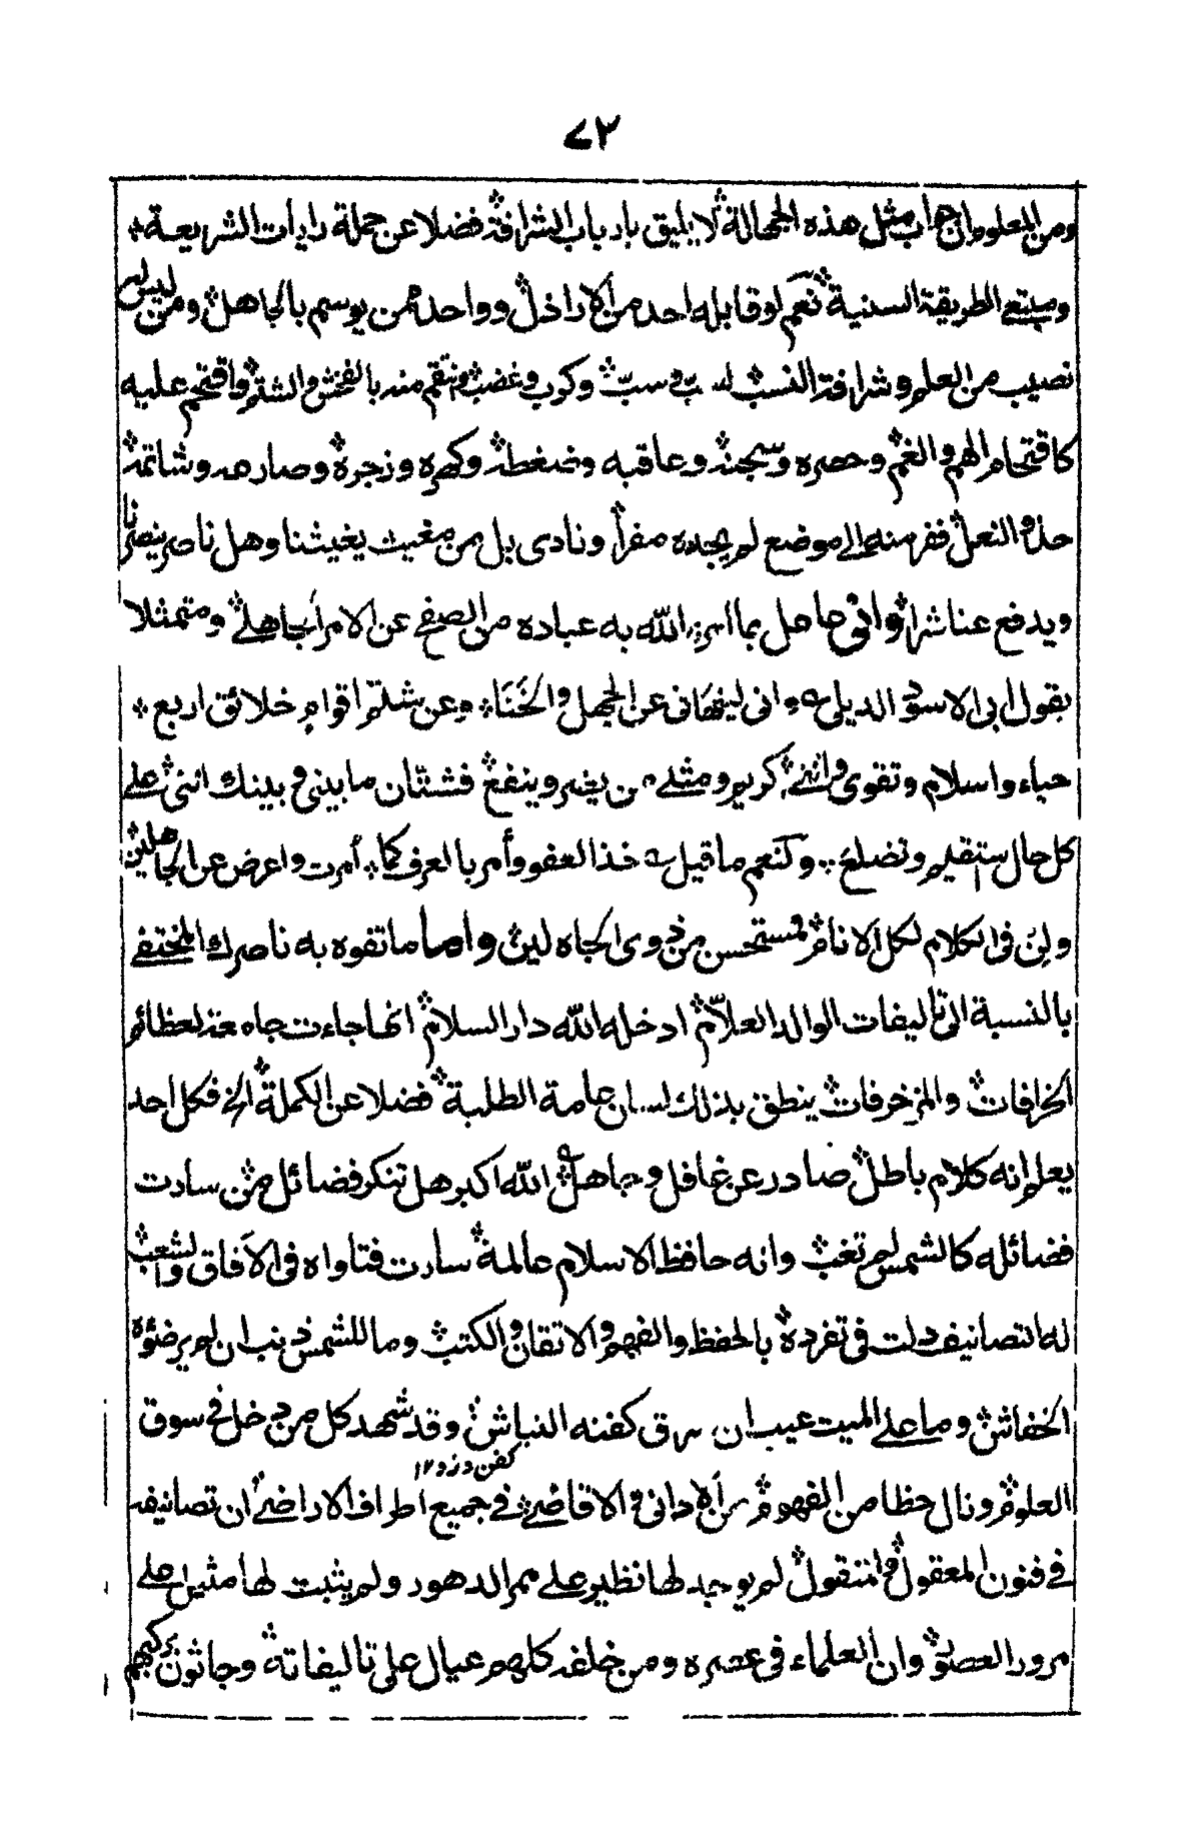 ٧٢
ومن المعلوم ان جواب مثل هذه الجهالة لا يليق بارباب الشرافة فضلا عن حملة رايات الشريعة
ومتبعى الطريقة السنية نعم لو قابله احد من الاراذل وواحد ممن يوسم بالجاهل ومن ليس له
نصيب من العلم وشرافة النسب وسبّ وكرب وغضب وانتقم منه بالفحش والشتم واقتحم عليه
كاقتحام الهم والغم وحصره وسجنه وعاقبه وضغطه وكهره وزجره وصارمه وشاتمه
حذو النعل ففر منه الى موضع لم يجده مفرا ونادى بل من مغيث يغيثنا وهل ناصر ينصرنا
ويدفع عنا شرا وانى عامل بما امر الله به عباده من الصفح عن الامر الجاهل ومتمثلا
بقول ابى الاسود الديلى وانى لينهانى عن الجهل والخَنَا وعن شتم اقوام خلائق اربع
حياء واسلام وتقوى واننى كريم ومثلى من يضر وينفع فشتّان ما بينى وبينك اننى على
كل حال ستقيم وتضلع وكنعم ما قيل خذ العفو وأمر بالعرف كما أمرت واعرض عن الجاهلين
ولِن فى الكلام لكل الانام فمستحسن من ذوى الجاه لين واما ما تفوه به ناصرك المختفى
بالنسبة الى تاليفات الوالد العلاّم ادخله الله دار السلام انها جاءت جامعة لعظائم
الخرافات والمزخرفات ينطق بذلك لسان عامة الطلبة فضلا عن الكملة الخ فكل احد
يعلم انه كلام باطل صادر عن غافل وجاهل الله اكبر هل تنكر فضائل من سارت
فضائله كالشمس لم تغب وانه حافظ الاسلام عالمة سارت فتاواه فى الآفاق والشعب
له التصانيف دلت فى تفرده بالحفظ والفهم والاتقان والكتب وما للشمس ذنب ان لم ير ضوءه
الخفاش وما على الميت عيب ان سرق كفنه النباش وقد شهد كل من دخل فى سوق
كفن دزد ١٢
العلوم ونال حظا من الفهوم من الادانى والاقاصى فى جميع اطراف الاراضى ان تصانيفه
فى فنون المعقول والمنقول لم يوجد لها نظير على ممر الدهور ولم يثبت لها مثيل على
مرور العصور وان العلماء فى عصره ومن خلفه كلهم عيال على تاليفاته وجاثون بركبهم